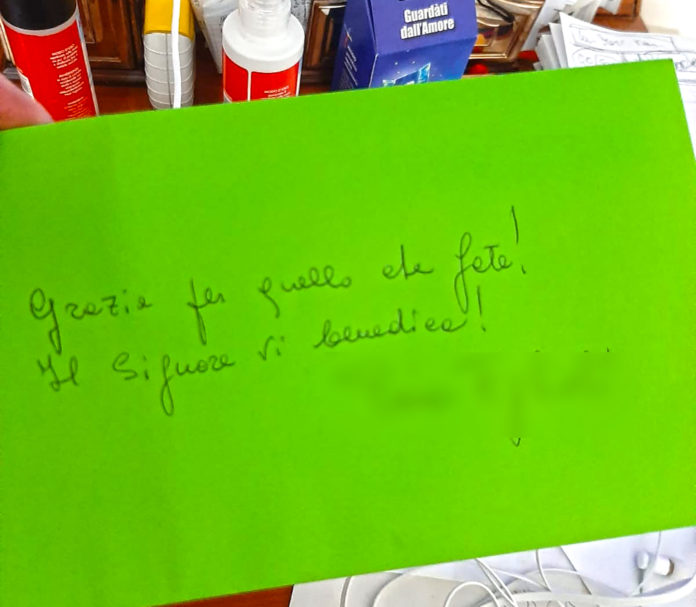 Guardàti
dall'Amore
Grazie per quello che fate!
Il Signore vi benedica!